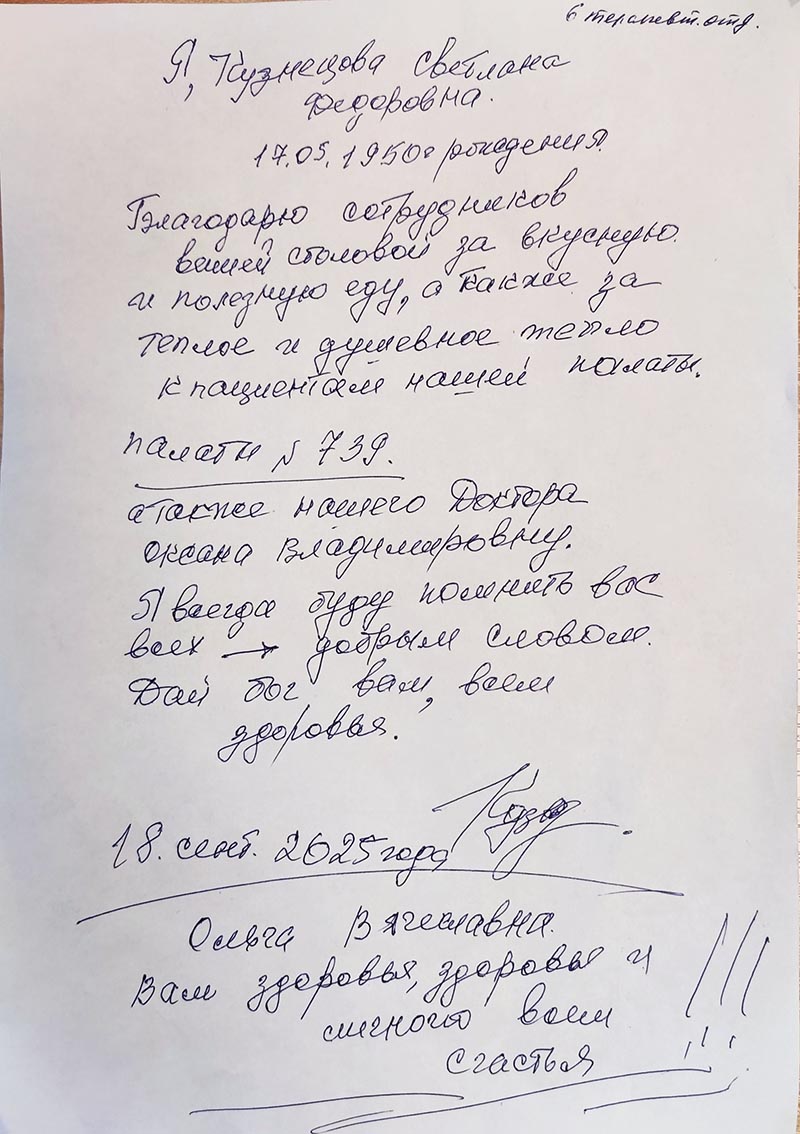 6 терапевт. отд.
Я, Кузнецова Светлана
Федоровна.
17.05.1950г рождения.
Благодарю сотрудников
вашей столовой за вкусную
и полезную еду, а также за
теплое и душевное тепло
к пациентам нашей палаты.
палаты № 739.
а также нашего Доктора
Оксана Владимировну.
Я всегда буду помнить вас
всех → добрым словом.
Дай бог вам, всем
здоровья.
18. сент. 2025 года
Ольга Вячеславна.
Вам здоровья, здоровья и
личного всем
счастья !!!